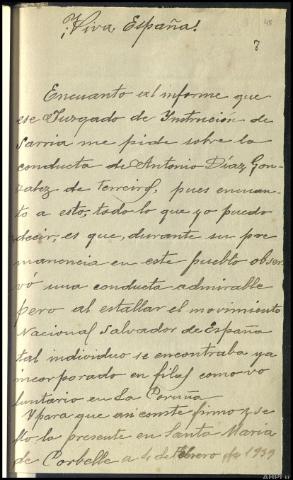 48
¡Viva España!
8
Encuanto al informe que
ese Juzgado de Instrucion de
Sarria me pide sobre la
conducta de Antonio Díaz Gon-
zalez de Terreiro, pues encuan-
to a esto, todo lo que yo puedo
decir, es que, durante su per
manencia en este pueblo obser
vó una conducta admirable
pero al estallar el movimiento
Nacional Salvador de España
tal individuo se encontraba ya
incorporado en filas como vo
luntario en La Coruña
Y para que asi conste firmo y se
llo la presente en Santa María
de Corbelle a 4 de Febrero de 1939